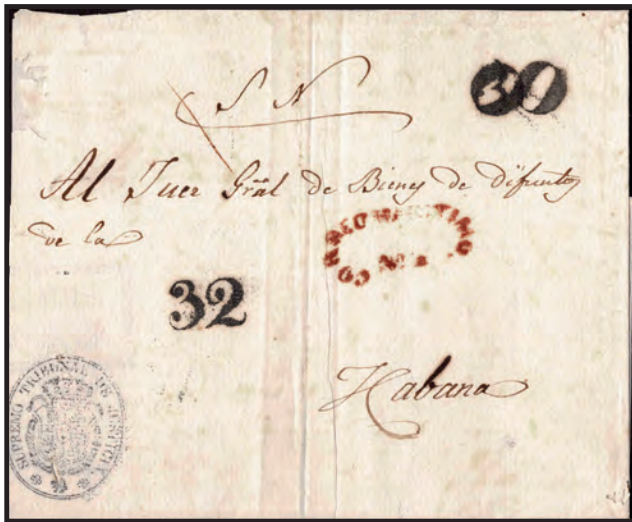 S N
30
Al Juez Gral de Bienes de difuntos
de la
CORREO MARITIMO
32
Habana
SUPREMO TRIBUNAL DE JUSTICIA